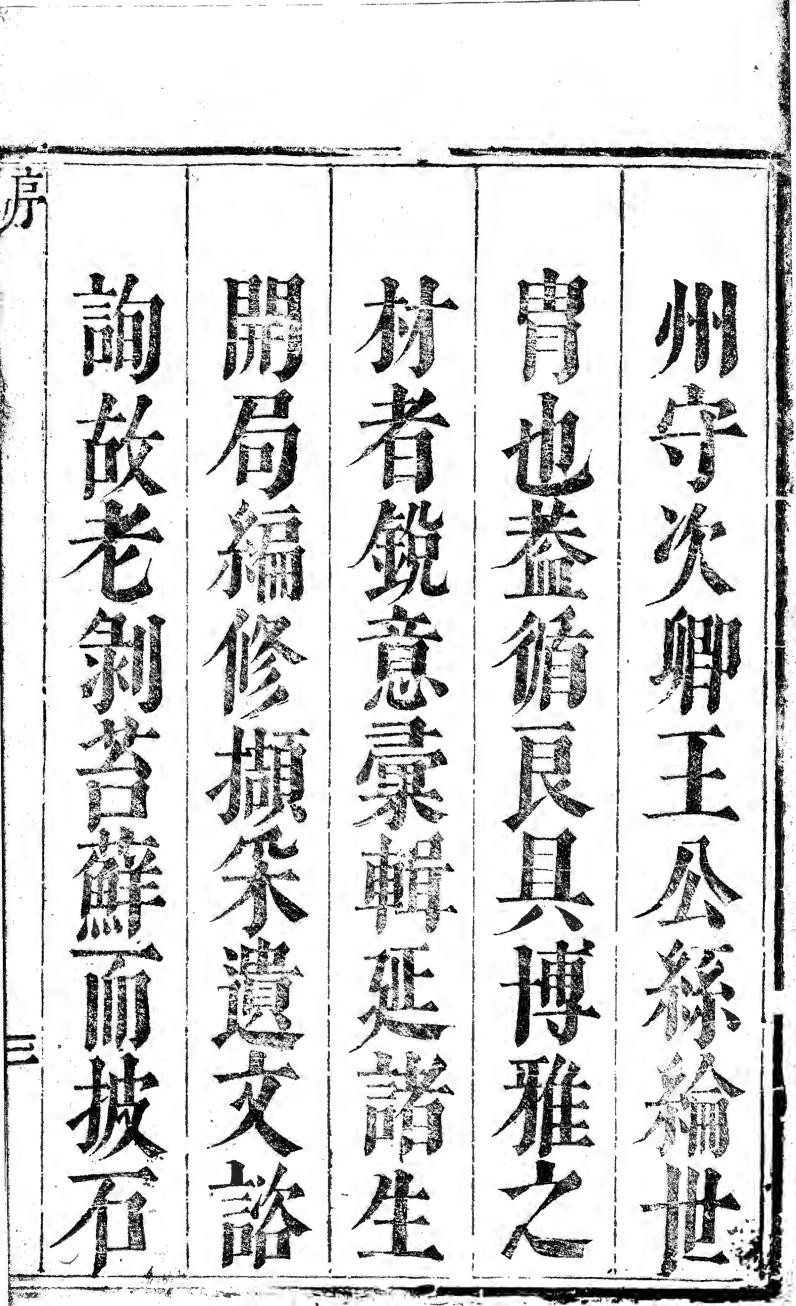 州守次卿王公絲綸世
胄也葢循良具博雅之
材者銳意彙輯延諸生
開局編修擷采遺文諮
詢故老剝苔蘚而披石
序
三